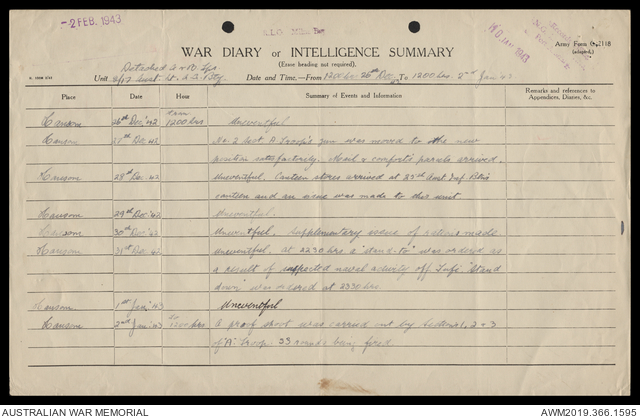 -2 FEB. 1943
WAR DIARY or INTELLIGENCE SUMMARY
(Erase heading not required).
Army Form C. 2118
(adapted.)
Detached
Unit Date and Time.—From 1200 hrs. 26th Dec To 1200 hrs. 2nd Jan '43
Place Date Hour Summary of Events and Information Remarks and references to Appendices, Diaries, &c.
Hansom 26th Dec '42 from 1200 hrs Uneventful
Hansom 27th Dec. 42 No. 2 Sect A Troop's gun was moved to the new
position satisfactorily. Mail & comforts parcels arrived.
Hansom 28th Dec. 42 Uneventful. Canteen stores arrived at Aust Inf Btn's
canteen and an issue was made to this unit
Hansom 29th Dec. '42 Uneventful.
Hansom 30th Dec '42 Uneventful. Supplementary issue of rations made
Hansom 31st Dec '42 Uneventful. At 2230 hrs a "stand-to" was ordered as
a result of suspected naval activity off Tufi. "Stand
down" was ordered at 2330 hrs.
Hansom 1st Jan '43 Uneventful
Hansom 2nd Jan '43 To 1200 hrs A proof shoot was carried out by Sections 1, 2 & 3
of "A" Troop. 33 rounds being fired.
AUSTRALIAN WAR MEMORIAL AWM2019.366.1595